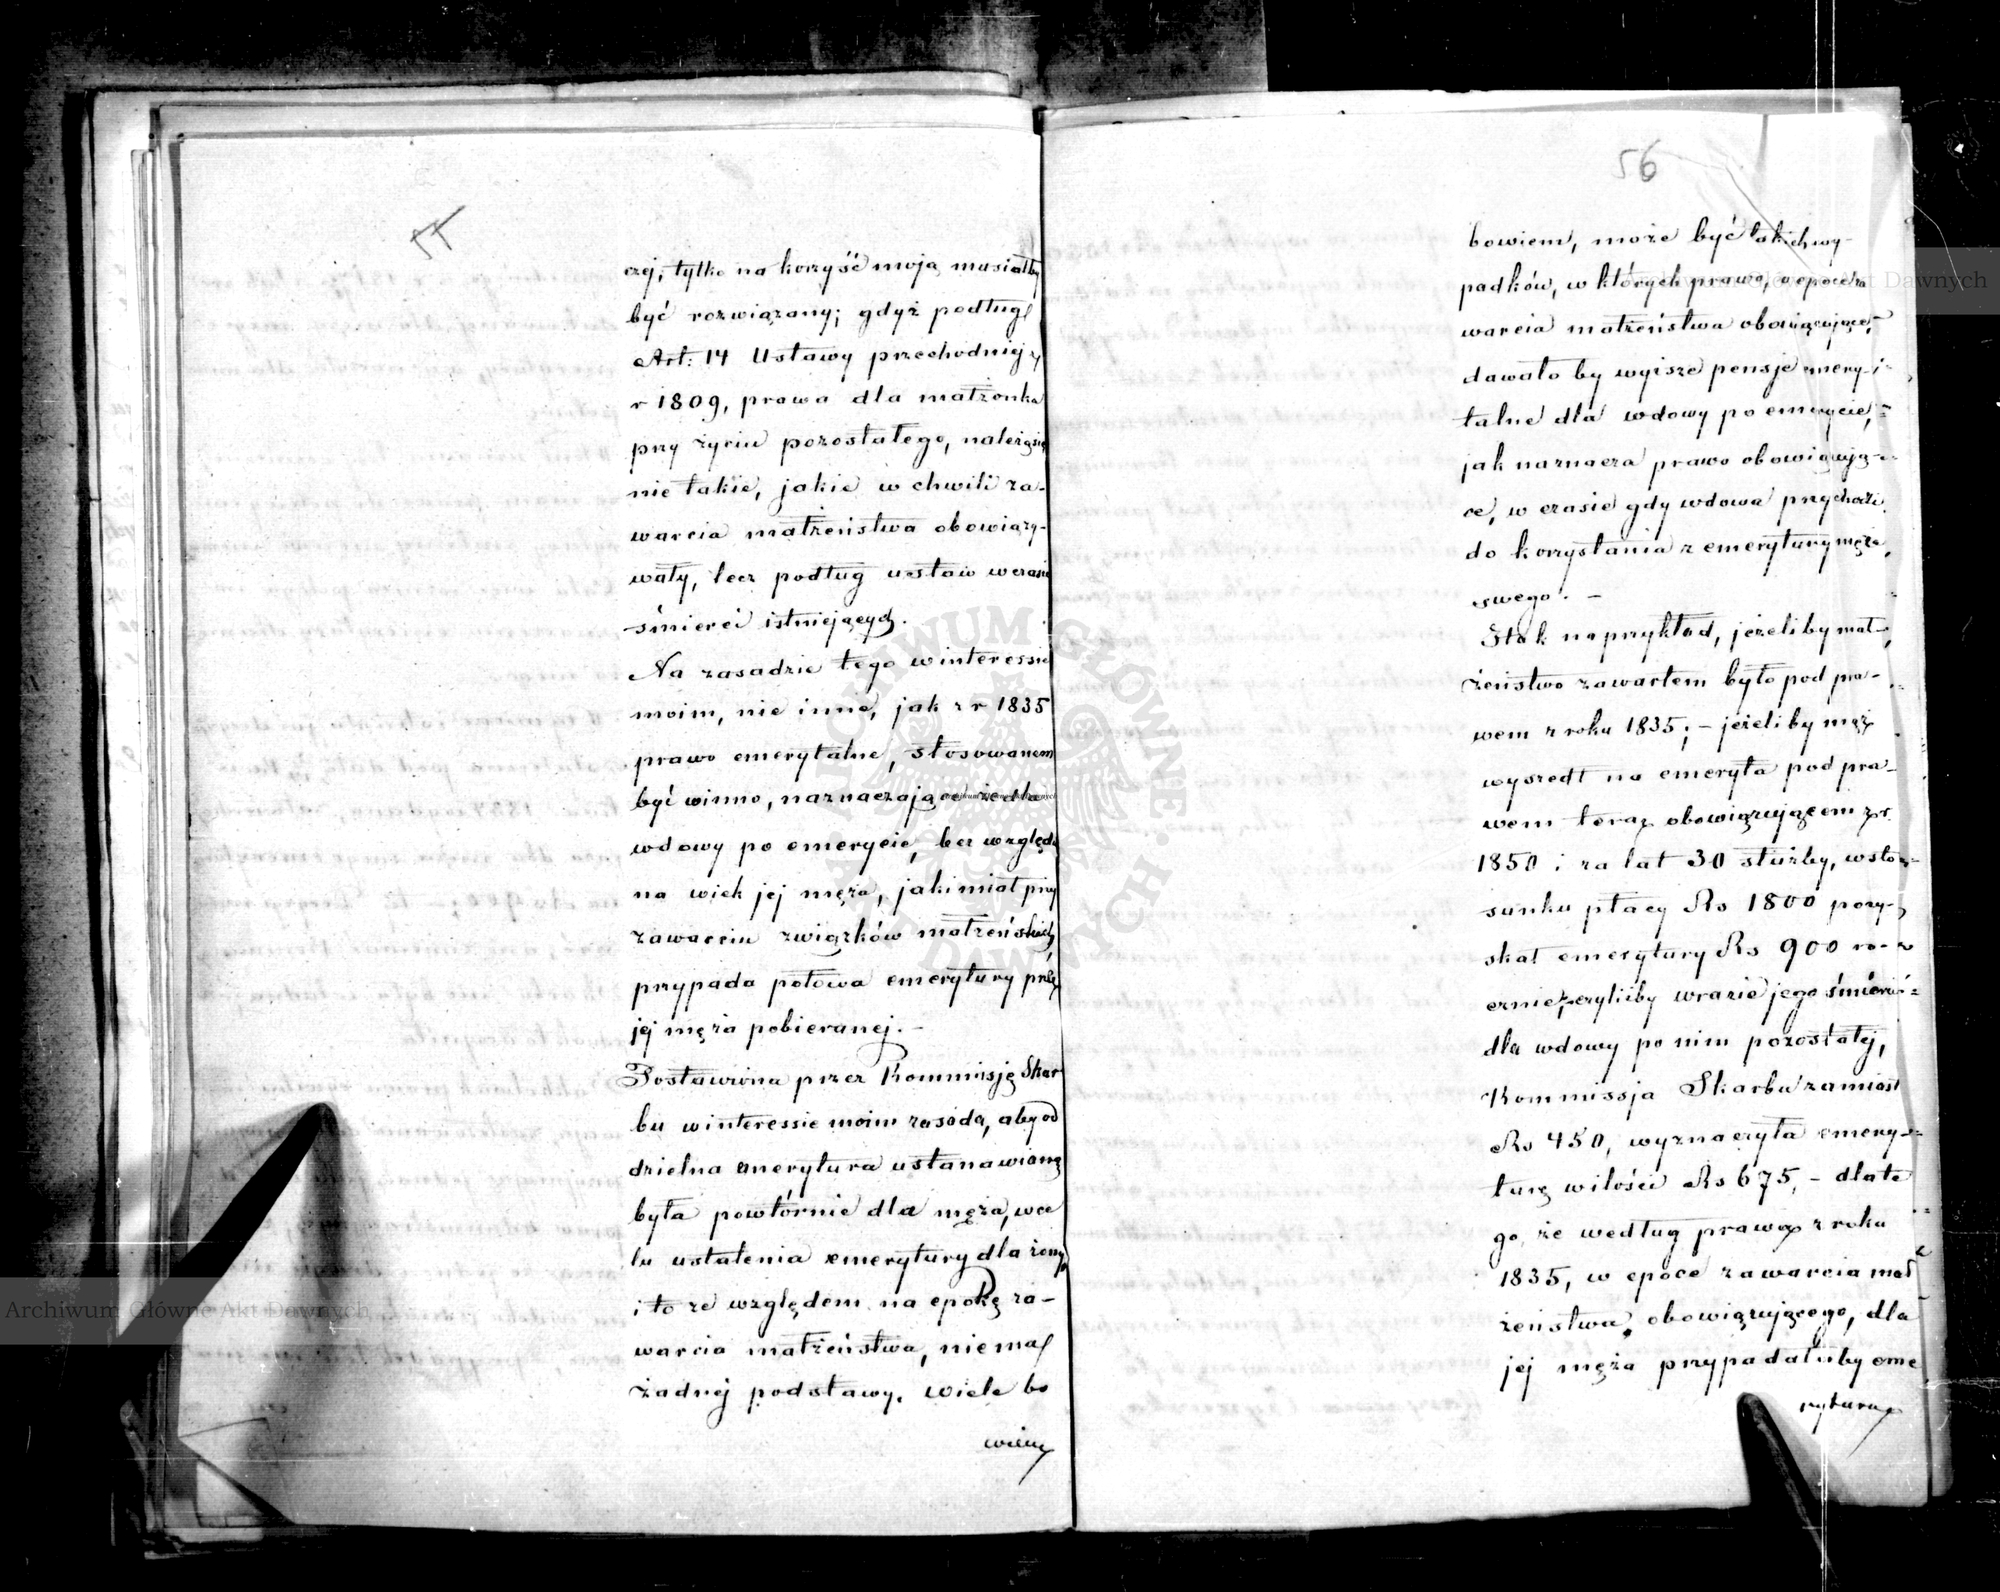 55
czej, tylko na korzyść moją musiałby
być rozwiązany; gdyż podług
Art: 14 Ustawy przechodniej z
r 1809, prawa dla małżonka
przy życiu pozostałego, należą się
nie takie, jakie w chwili za-
warcia małżeństwa obowiązy-
wały, lecz podług ustaw w czasie
śmierci istniejących.
Na zasadzie tego w interessie
moim, nie inne, jak z r 1835
prawo emerytalne, stosowanem
być winno, naznaczające że dla
wdowy po emerycie, bez względu
na wiek jej męża, jaki miał przy
zawarciu związków małżeńskich,
przypada połowa emerytury przez
jej męża pobieranej. —
Postawiona przez Kommissję Skar
bu w interessie moim zasada, aby od
dzielna emerytura ustanawianą
była powtórnie dla męża, w ce
lu ustalenia emerytury dla żony,
i to ze względem na epokę za-
warcia małżeństwa, niema
żadnej podstawy. Wiele bo
wiem
56
bowiem, może być takich wy-
padków, w których prawo, w epoce za
warcia małżeństwa obowiązujące,
dawało by wyższe pensje emery-
talne dla wdowy po emerycie,
jak naznacza prawo obowiązują-
ce, w czasie gdy wdowa przychodzi
do korzystania z emerytury męża
swego. —
Itak naprzykład, jeżeliby mał-
żeństwo zawartem było pod pra-
wem z roku 1835; — jeżeliby mąż
wyszedł na emeryta pod pra-
wem teraz obowiązującem z r.
1850 i za lat 30 służby, w sto-
sunku płacy Rs 1800 pozy-
skał emerytury Rs 900 ro-
cznie, czyliżby w razie jego śmierci
dla wdowy po nim pozostałej,
Kommissja Skarbu zamiast
Rs 450, wyznaczyła emery-
turę w ilości Rs 675, — dlate
go, że według prawa z roku
1835, w epoce zawarcia mał
żeństwa, obowiązującego, dla
jej męża przypadałaby eme
rytura
Archiwum Główne Akt Dawnych
ARCHIWUM GŁÓWNE AKT DAWNYCH